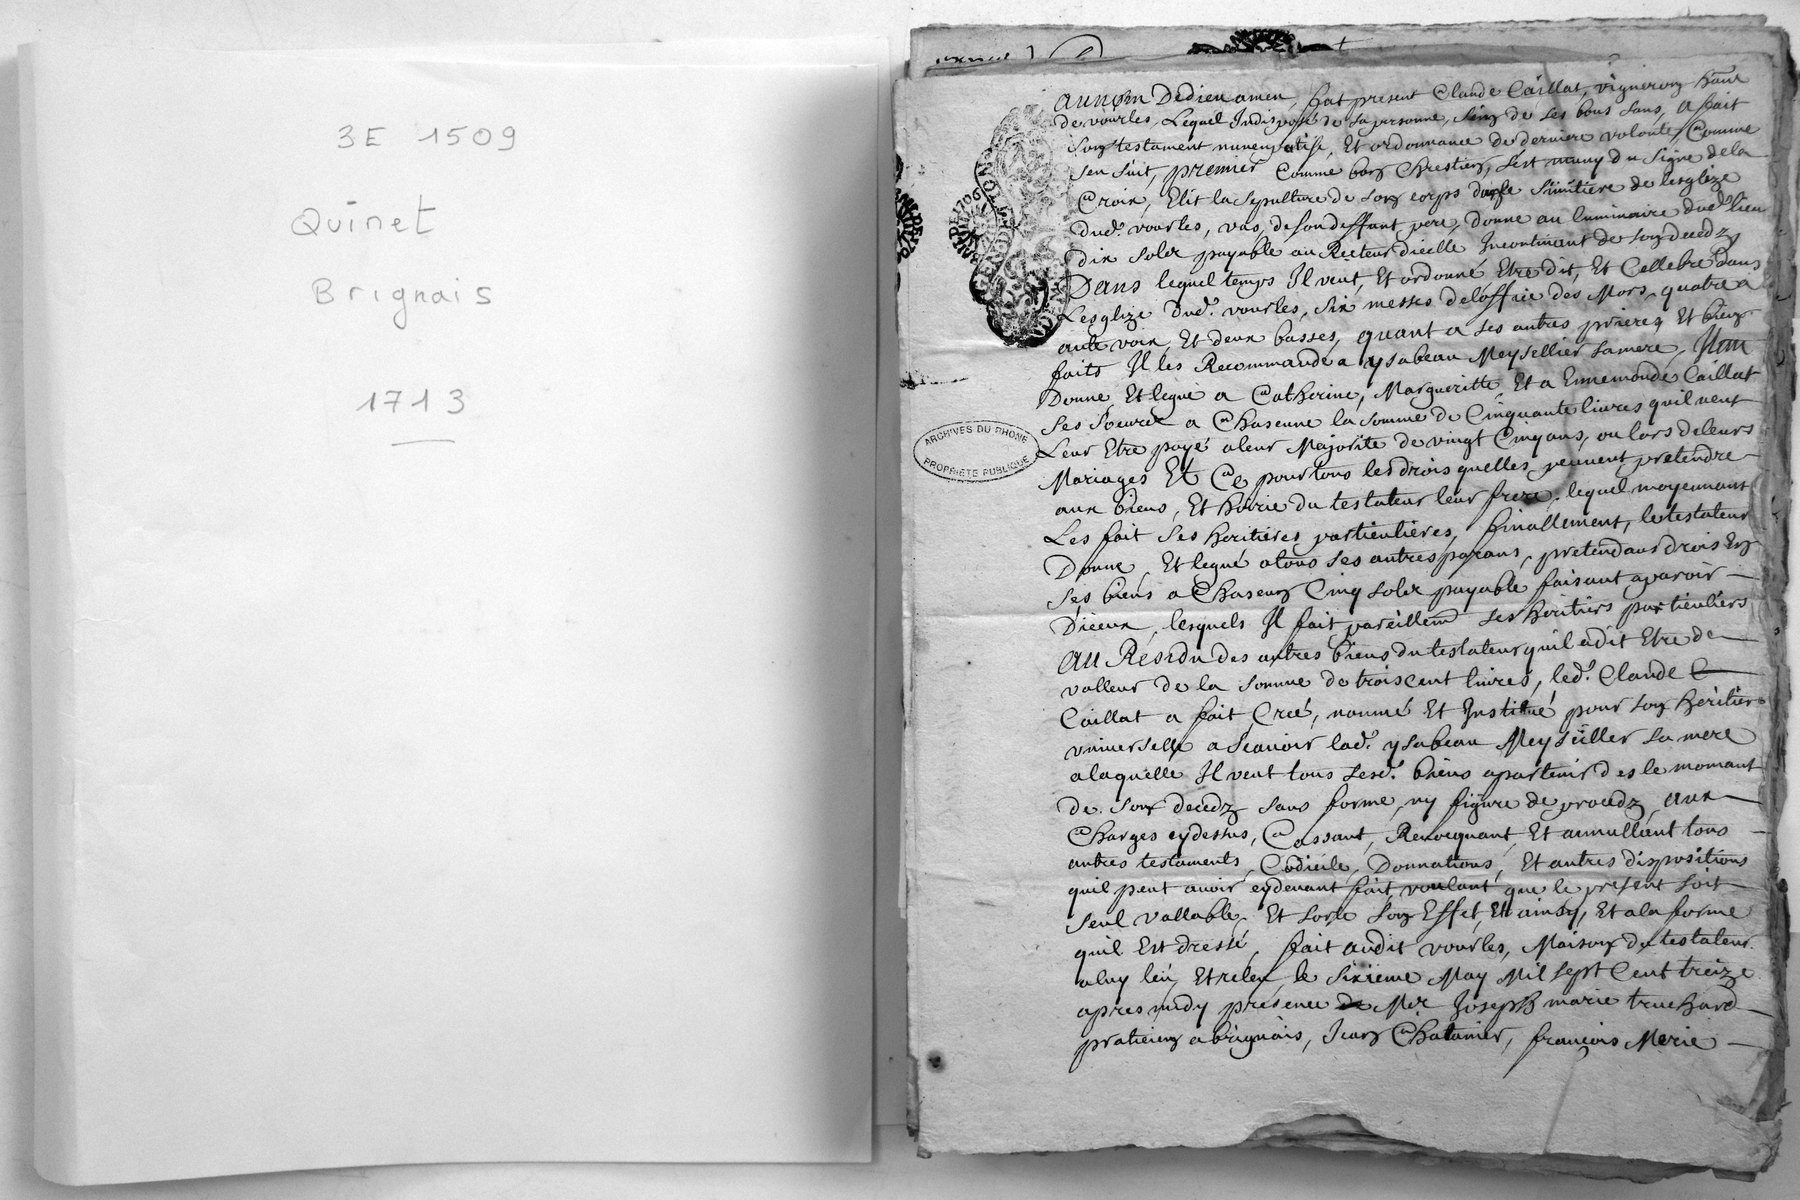 3E 1509
Quinet
Brignais
1713
ARCHIVES DU RHONE
PROPRIETE PUBLIQUE
GENERAL DE LYON
Au nom De dieu amen, fut present Claude Caillat, vigneron habt
de vourles, Lequel Indisposé de sa personne, sein de ses bons sans, a fait
son testament nuncupatife, Et ordonnance de derniere volonté, Comme
sen suit, premier Comme bon Chrestien, sest muny du signe de la
Croix, Elit la sepulture de son corps dans le simitiere de lesglize
dud. vourles, vas, de son deffunt pere, donne au luminaire dud. lieu
dix solz payable au Recteur dicelle Incontinant de son decedz
Dans lequel temps Il veut, Et ordonne Etre dit, Et Cellebré dans
Lesglize dud. vourles, six messes de loffice des Mors, quatre a
aute voix, Et deux basses, quant a ses autres prieres Et bien
faits Il les Recommande a ysabeau Meysellier sa mere, Item
Donne Et legue a Catherine, Margueritte, Et a Ennemonde Caillat
ses soeurs a Chascune la somme de Cinquante livres quil veut
Leur Etre payé a leur Majorité de vingt Cinq ans, ou lors de leurs
Mariages Et Ce pour tous les drois quelles peuvent pretendre
aux biens, Et hoirie du testateur leur frere, lequel moyennant
Les fait ses heritieres particulieres, finallement, le testateur
Donne, Et legué a tous ses autres parans, pretendans drois En
ses biens a Chascun Cinq solz payable faisant aparoir
Diceux, lesquels Il fait pareillemt ses heritiers particuliers
Au Residu des autres biens du testateur quil a dit Etre de
valleur de la somme de trois Cent livres, led. Claude
Caillat a fait Creé, nommé Et Institué pour son heritiere
universelle a scavoir lad. ysabeau Meyseiller sa mere
a laquelle Il veut tous sesd. biens apartenir des le momant
de son decedz sans forme, ny figure de procedz aux
Charges cy dessus, Cassant, Revoquant, Et annullant tous
autres testaments, Codicile, Donnations, Et autres dispositions
quil peut avoir cy devant fait, voulant que le present soit
seul vallable, Et sorte son Effet, Et ainsy, Et a la forme
quil Est dressé, fait audit vourles, Maison du testateur
a luy leu, Et releu, le sixieme May Mil sept Cent treize
apres midy presence de Mer Joseph marie truchard
praticien a brignais, Jean Chatanier, francois Merie